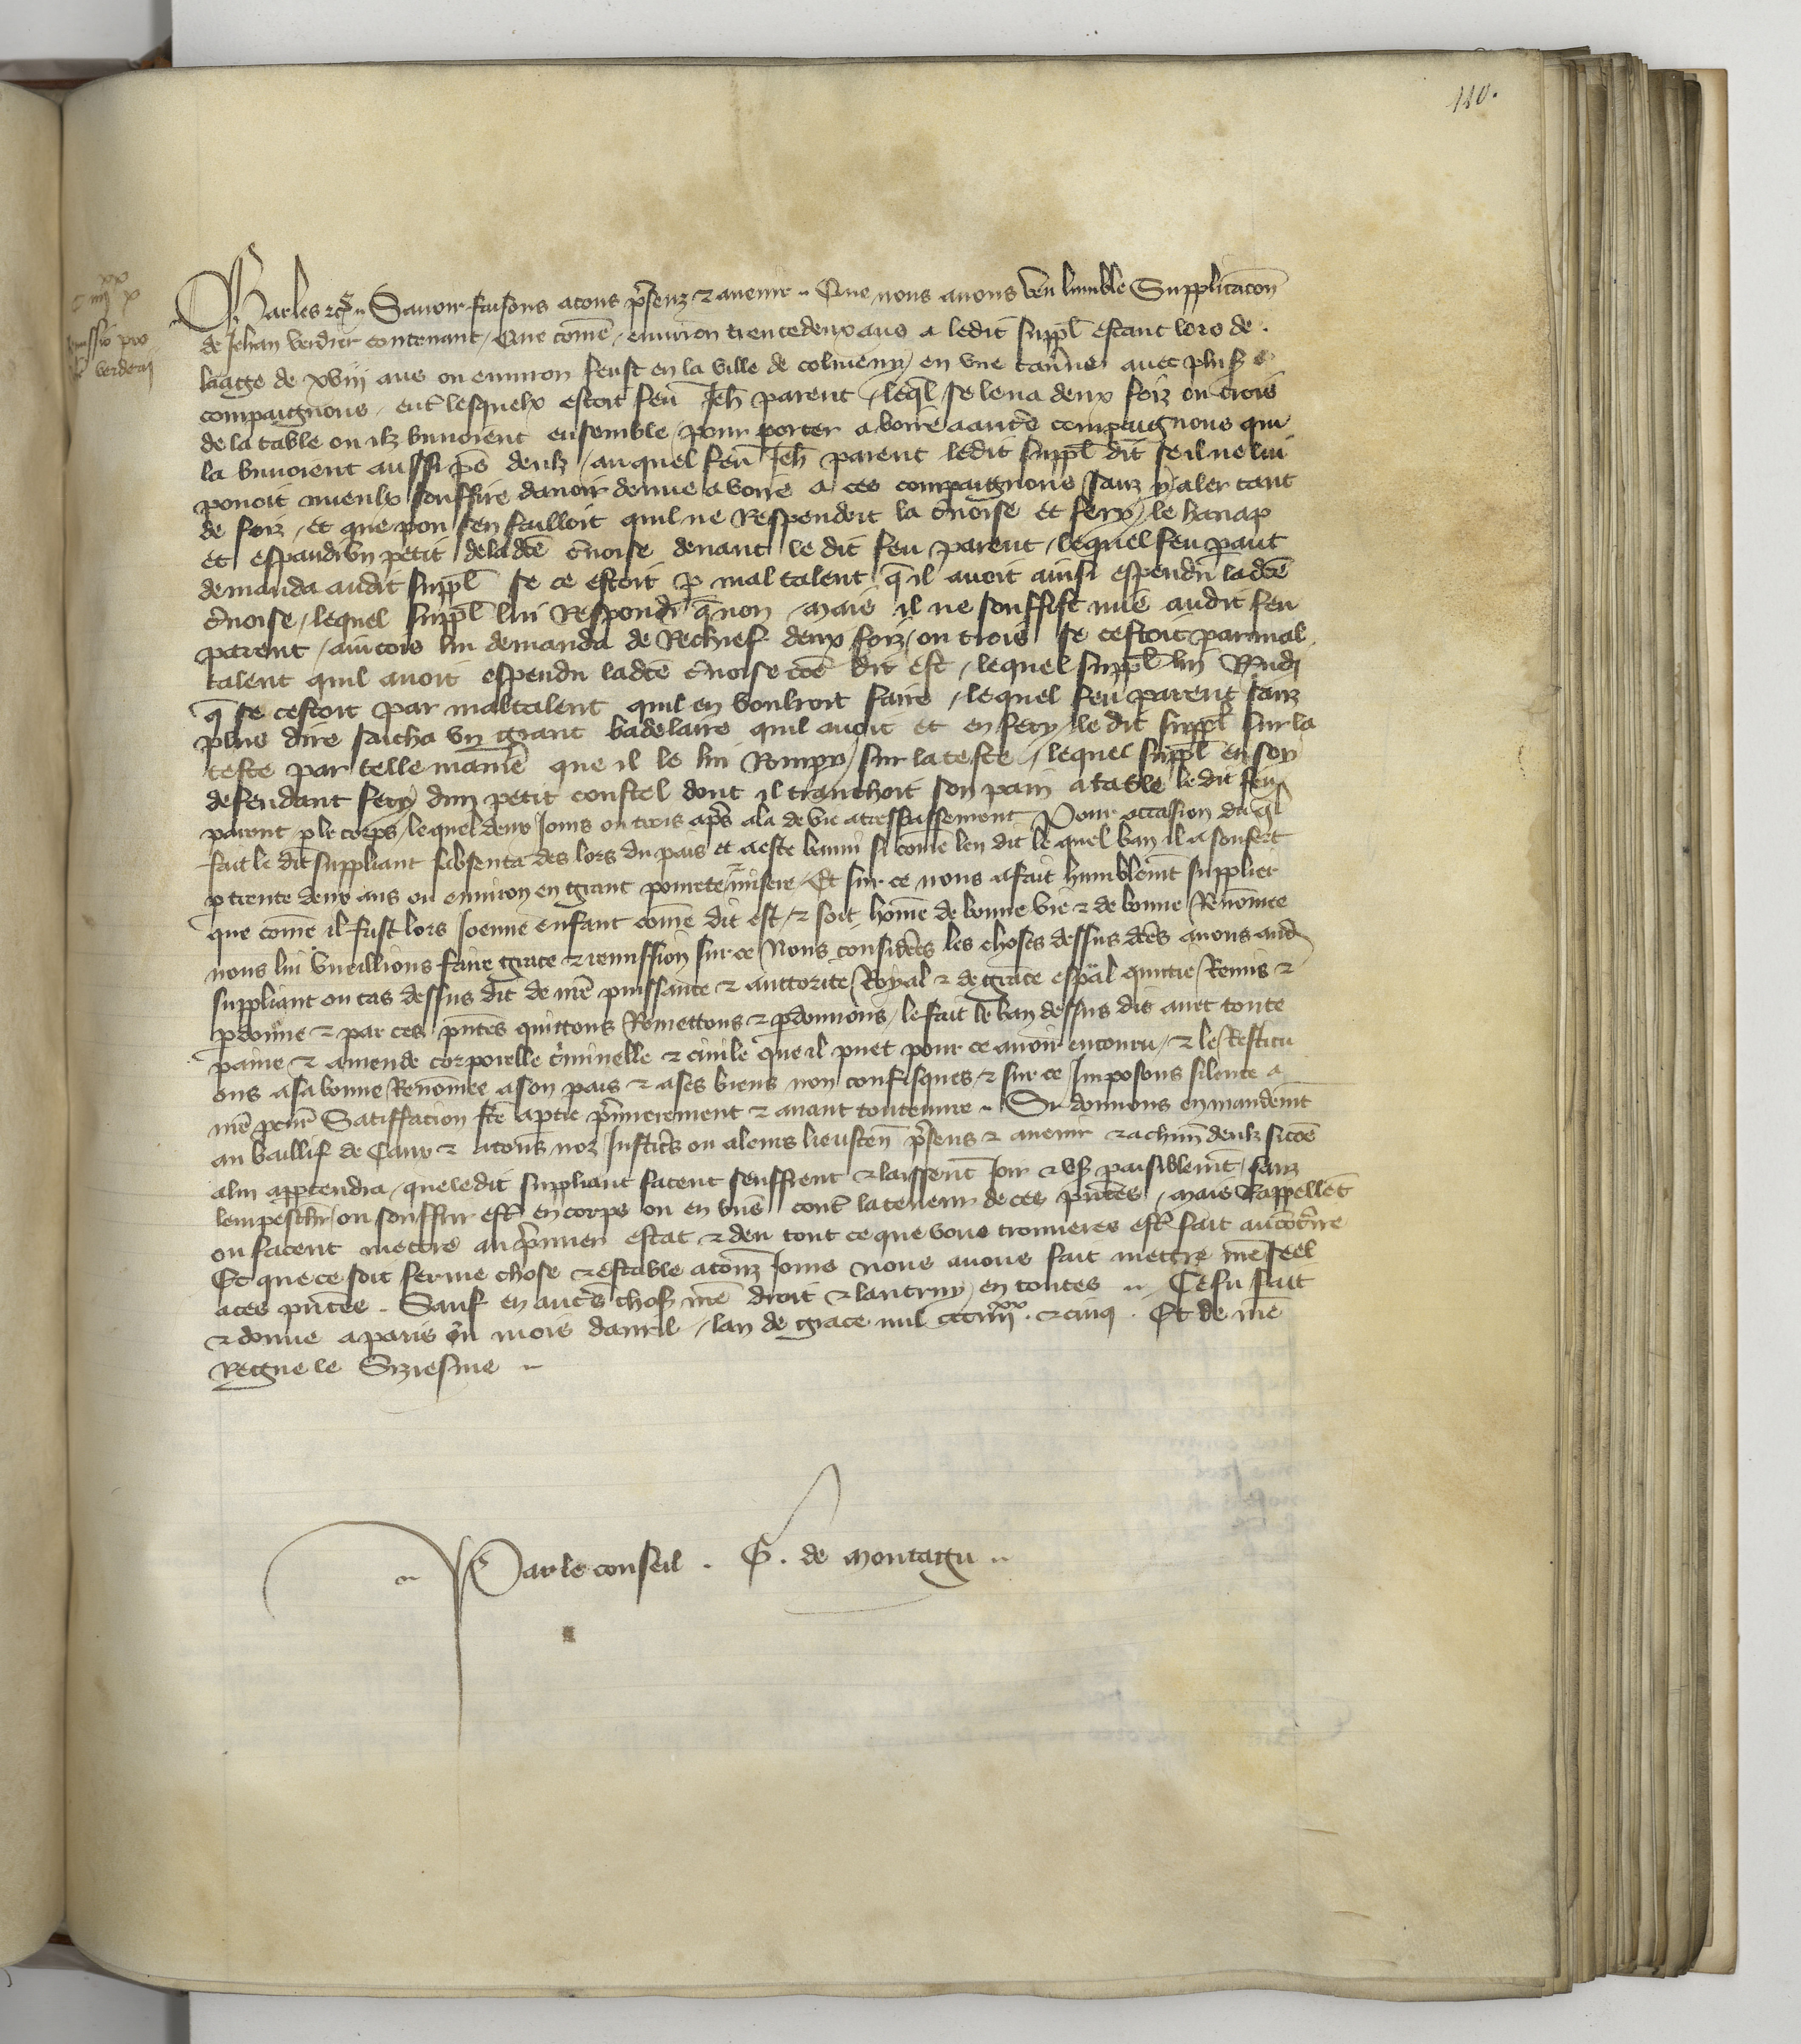 110.
c iiii xx x
remissio pro
Jo verderii
Charles etc. Savoir faisons a tous p̃senz & avenir Que nous avons veu lumble Supplicacõn
de Jehan verdier contenant / Que com̃e environ trentedeux ans a ledit suppl̃ estant lors de
laage de xviij ans ou environ feust en la ville de en une tav̾ne avec plus̾
compaignons / ent̾ lesquelx estoit feu Jeh̃ parent / leq̃l se leva deux foiz ou trois
de la table ou ilz buvoient ensemble / pour porter a boire a aut̾s compaignons qui
la buvoient aussi p̾s deulz / auquel feu Jeh̃ parent ledit suppl̃ dit se il ne lui
povoit mieulx souffire davoir donne a boire a ces compaignons sanz y aler tant
de foiz / et que pou sen failloit quil ne Respendoit la c̾voise et fery le hanap
et espandi un petit de la dc̃e c̾voise devant le dit feu parent / lequel feu par̃nt
demanda audit suppl̃ se ce estoit p̱ mal talent q̃ il avoit ainsi espendu ladc̃e
c̾voise / lequel suppl̃ lui Respondi q̃ non mais il ne souffist mie audit feu
parent / aincois lui demanda de Rechief deux foiz ou trois se cestoit par mal
talent quil avoit espendu ladc̃e c̾voise com̃e dit est / lequel suppl̃ lui Rñdi
q̃ se cestoit par maltalent quil en vouldroit faire / lequel feu parent sanz
plus dire sacha un grant badelaire quil avoit et en fery le dit suppl̃ sur la
teste par telle manie̾ que il le lui Rompy sur la teste / lequel suppl̃ en soy
defendant fery dun petit coustel dont il tranchoit son pain a table le dit feu
parent p̱ le corps / lequel deux Jours ou trois ap̾s ala de vie a trespassement Pour occasion du q̃l
fait le dit suppliant sabsenta des lors du pais et a este banni si com̃e len dit le quel ban il a souffert
p̱ trente deux ans ou environ en grant povrete & misere / Et sur ce nous a fait humblem̃t supplier
que com̃e il fust lors Joenne enfant com̃e dit est / & soit hom̃e de bonne vie & de bonne Renom̃ee
nous lui vueillions faire grace & remission sur ce Nous considere̾s les choses dessus dc̃es avons aud̃
suppliant ou cas dessus dit de nr̃e puissance & auctorite Royal & de grace esp̃al quittie Remis &
p̱donne & par ces p̃ntes quittons Remettons & p̱donnons / le fait le ban dessus dis avec toute
paine & amende corporelle c̾iminelle & civile que il puet pour ce avoir encouru / & le Restitu
ons a sa bonne Renom̃ee a son pais & a ses biens non confisques / & sur ce Imposons silence a
nr̃e procur̾ Satiffacion fc̃e a p̱tie p̾mierement & avant toute euvre Si donnons en mandem̃t
au baillif de Caux & a tous noz Justicie̾s ou a leurs lieuxten̾ p̃sens & avenir & a ch̃un deulz si com̃e
a lui appartendra / que le dit suppliant facent seuffrent & laissent Joir & us̾ paisiblem̃t / sanz
lempesch̾ / ou souffrir est̾ en corps ou en biens cont̾ la teneur de ces p̃ntes / mais Rappellẽt
ou facent mettre au p̾mier estat & deu tout ce que vous trouveres est̾ fait au cont̾re
Et que ce soit ferme chose & estable a touz Jours nous avons fait mettre nr̃e seel
a ces p̃ntes . Sauf en aut̾s chos̾ nr̃e droit & lautruy en toutes Ce fu fait
& donne a paris ou mois davril / lan de grace mil ccciiiixx & cinq . Et de nr̃e
Regne le Siziesme
Par le conseil . G . de montagu